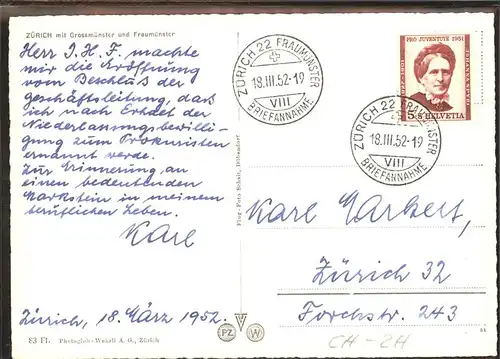 ZÜRICH mit Grossmünster und Fraumünster
Herr J. H. F. machte
mir die Eröffnung
vom Beschluß der
Geschäftsleitung, daß
ich nach Erhalt der
Niederlassungsbewilli-
gung zum Prokuristen
ernannt werde.
Zur Erinnerung an
einen bedeutenden
Markstein in meinem
beruflichen Leben.
Karl
Zürich, 18. März 1952.
83 Fl. Photoglob-Wehrli A. G., Zürich
PZ W
ZÜRICH 22 FRAUMÜNSTER
18.III.52-19
VIII
BRIEFANNAHME
PRO JUVENTUTE 1951
JOHANNA SPYRI
5+5 HELVETIA
ZÜRICH 22 FRAUMÜNSTER
18.III.52-19
VIII
BRIEFANNAHME
Karl Markert,
Zürich 32
Forchstr. 243
CH-ZH